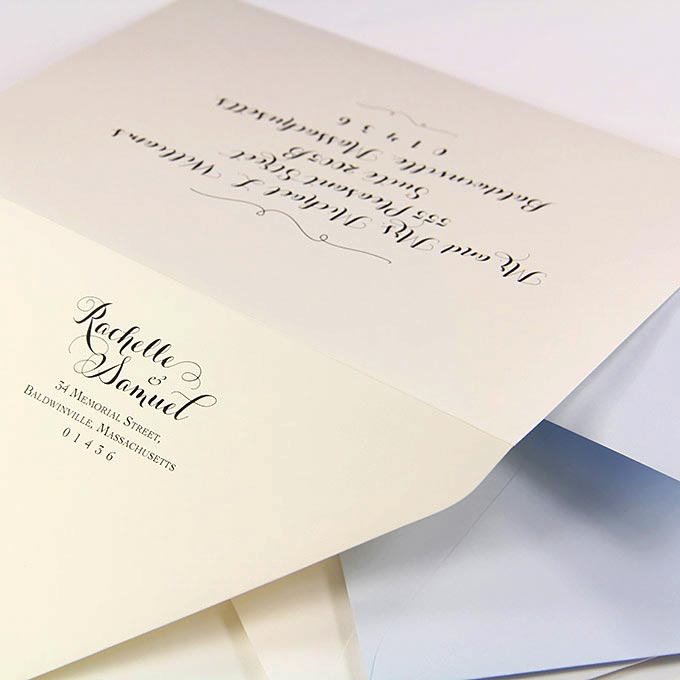 Mr. and Mrs. Michael L. Williams
555 Pleasant Street
Suite 2002B
Baldwinville, Massachusetts
01436
Rachelle
&
Samuel
34 Memorial Street,
Baldwinville, Massachusetts
01436